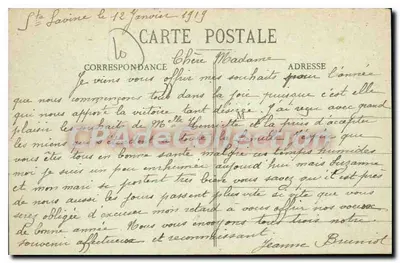 Ste Savine le 12 Janvier 1919
CARTE POSTALE
CORRESPONDANCE
ADRESSE
Chère Madame
Je viens vous offrir mes souhaits pour l'année
que nous commençons tous dans la joie puisque c'est elle
qui nous apporte la victoire tant désirée J'ai reçue avec grand
plaisir les souhaits de Melle Henriette et la prie d'accepter
les miens
vous êtes tous en bonne santé malgré ces temps humides
moi je suis un peu enrhumée aujourd'hui mais Suzanne
et mon mari se portent très bien vous savez qu'il est près
de nous aussi les jours passent plus vite si vite que vous
serez obligée d'excuser mon retard à vous offrir nos voeux
de bonne année Nous vous envoyons tous trois notre
souvenir affectueux et reconnaissant.
Jeanne